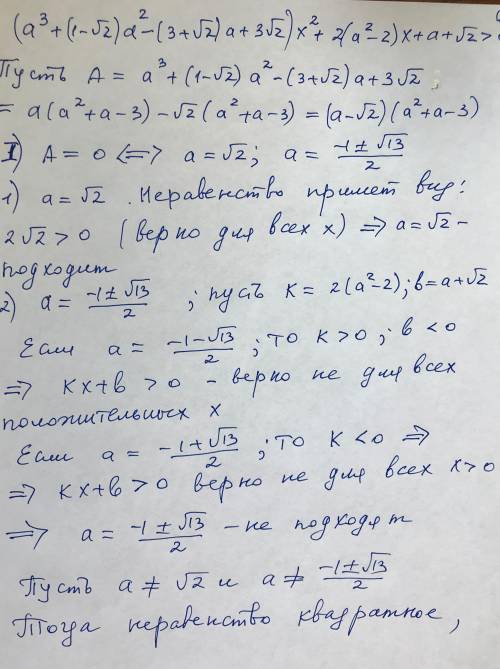 (a³+(1-√2)a²-(3+√2)a+3√2)x²+2(a²-2)x+a+√2>
Пусть A = a³+(1-√2)a²-(3+√2)a+3√2;
= a(a²+a-3)-√2(a²+a-3)=(a-√2)(a²+a-3)
I) A=0 <=> a=√2; a = (-1±√13)/2
1) a=√2. Неравенство примет вид:
2√2>0 (верно для всех x) => a=√2 -
подходит
2) a = (-1±√13)/2 ; пусть K = 2(a²-2); b=a+√2
Если a = (-1-√13)/2 ; то K>0; b<0
=> Kx+b >0 - верно не для всех
положительных x
Если a = (-1+√13)/2 ; то K<0 =>
=> Kx+b>0 верно не для всех x>0
=> a = (-1±√13)/2 - не подходят
Пусть a≠√2 и a≠ (-1±√13)/2
Тогда неравенство квадратное,